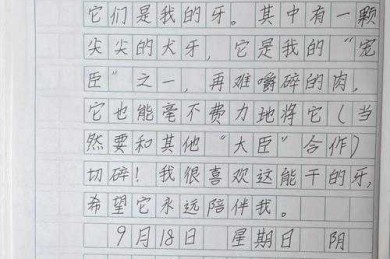 它们是我的牙。其中有一颗
尖尖的犬牙，它是我的“宠
臣”之一，再难嚼碎的肉，
它也能毫不费力地将它（当
然要和其他“大臣”合作）
切碎！我很喜欢这能干的牙，
希望它永远陪伴我。
9月18日 星期日 阴